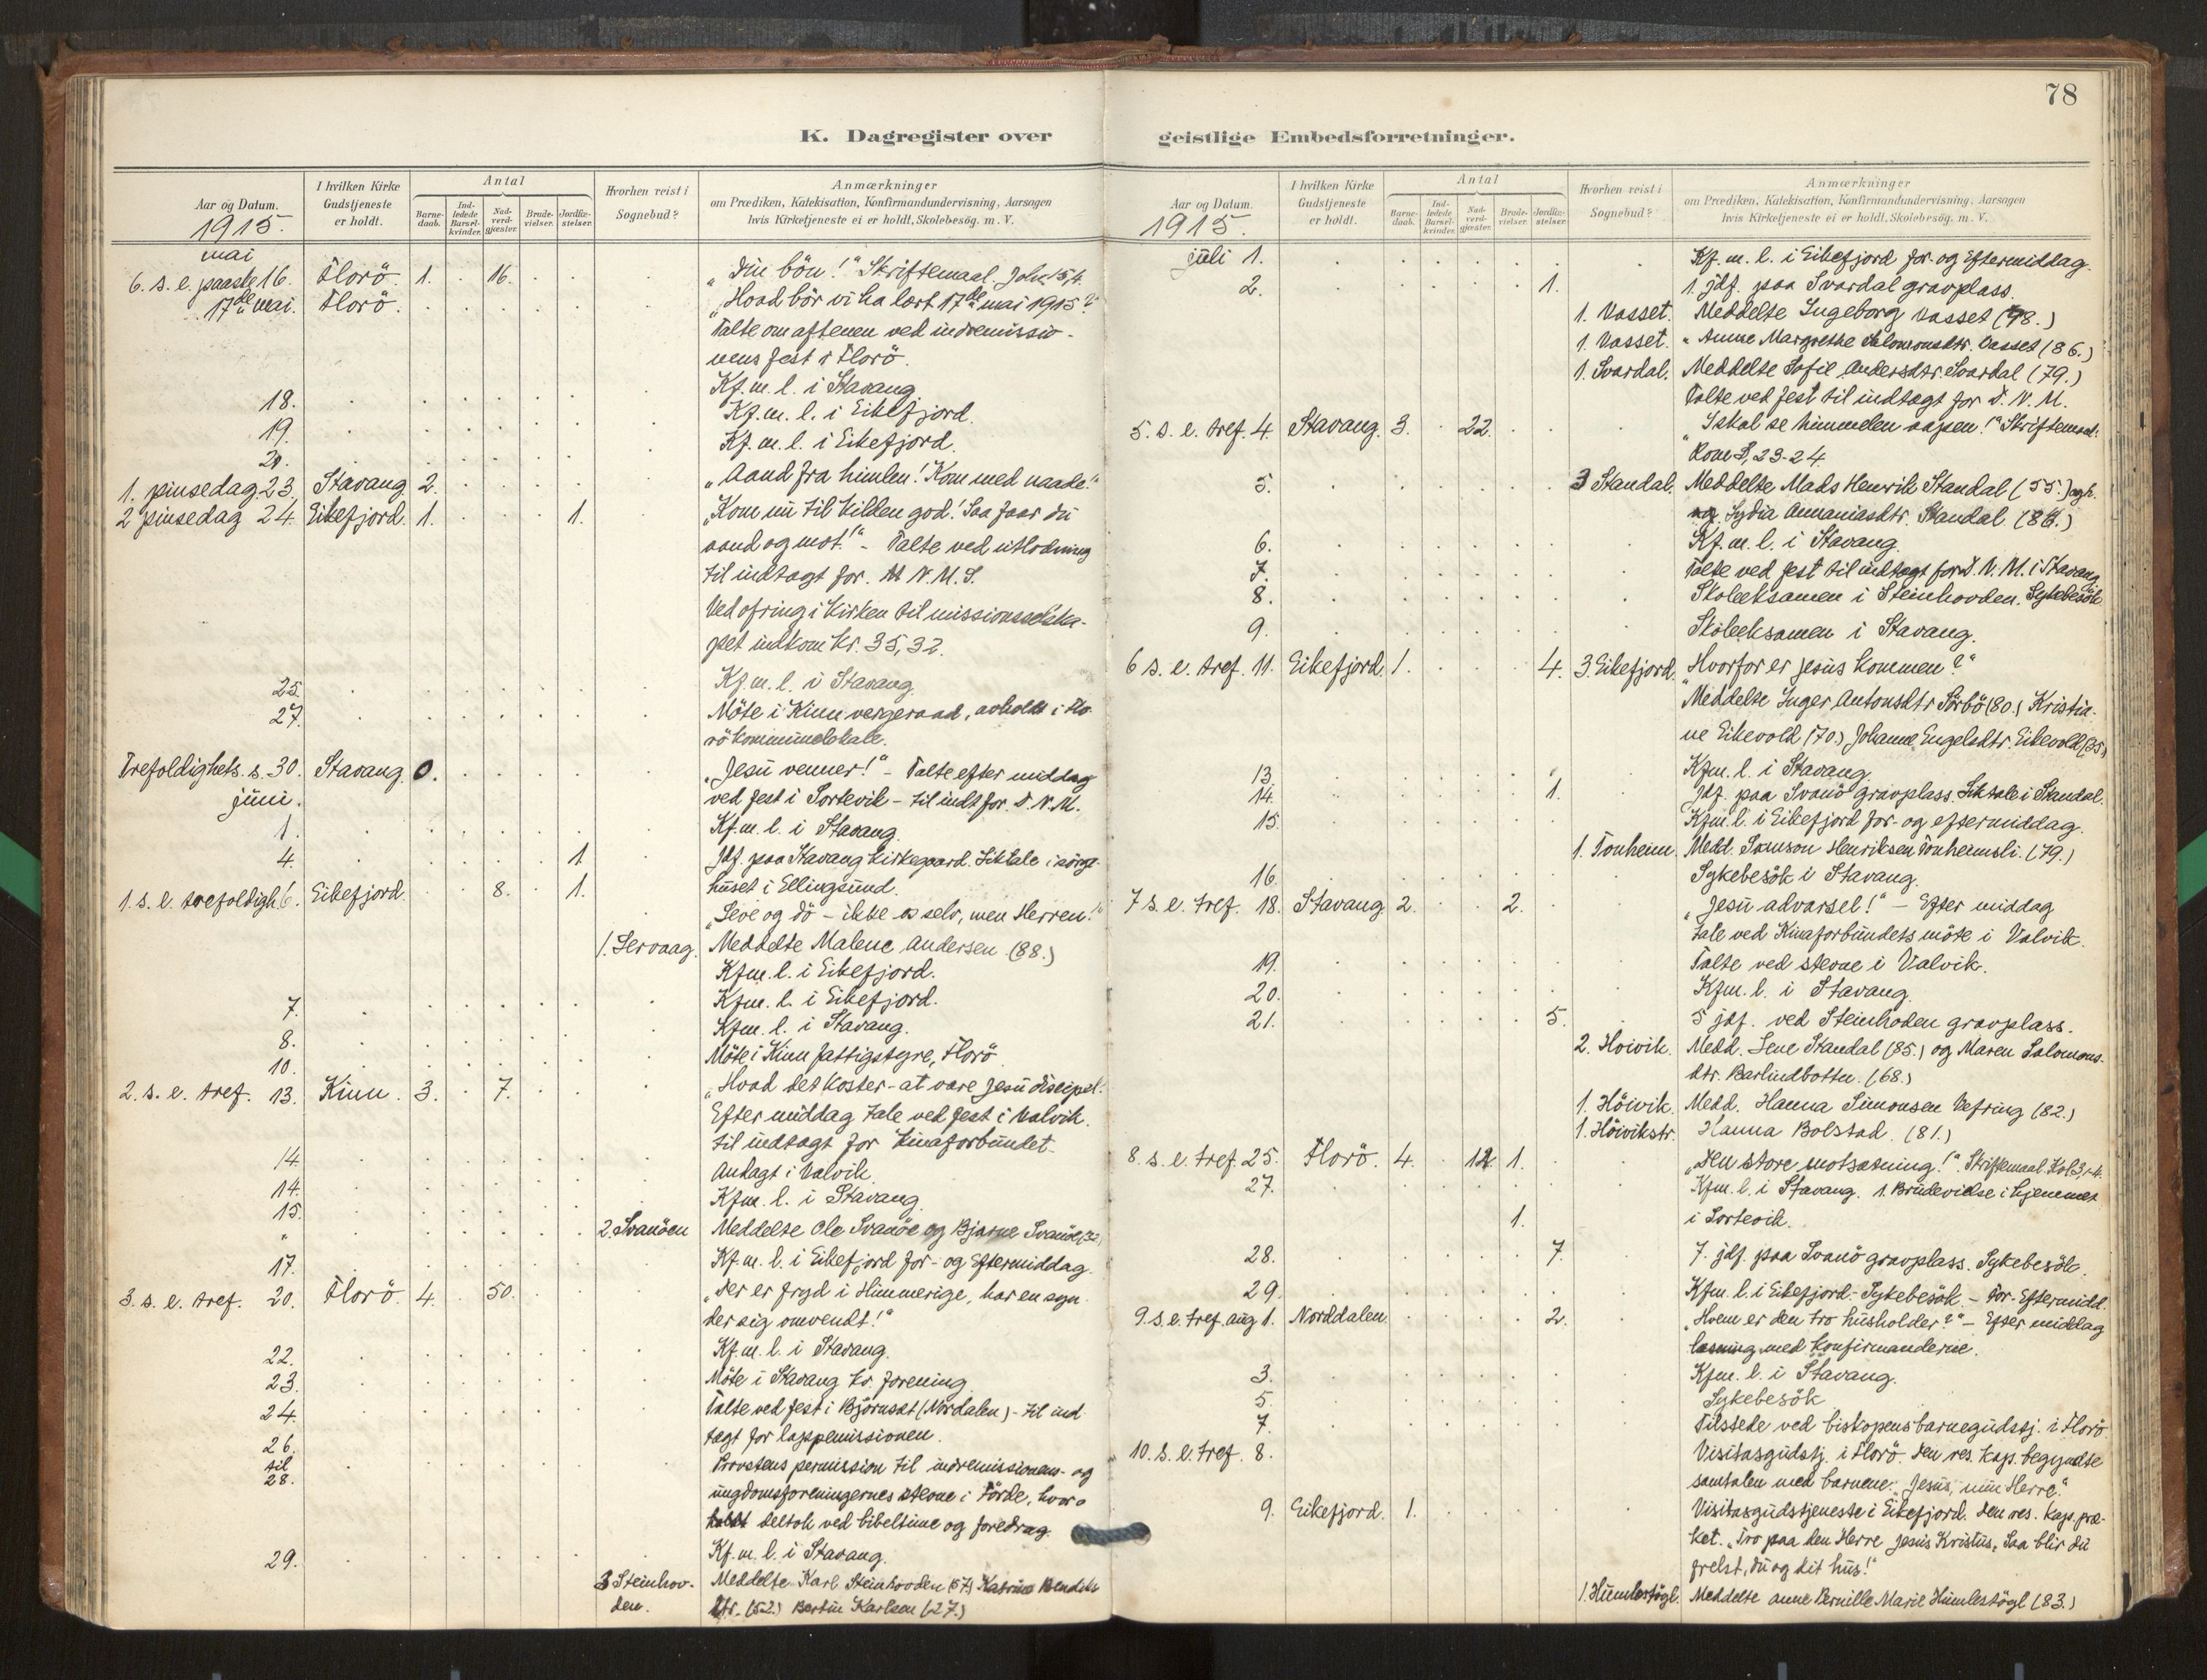 78
K. Dagregister over geistlige Embedsforretninger.
Aar og Datum.
1915.
I hvilken Kirke Gudstjeneste er holdt.
Antal
Barne-daab.
Ind-ledede Barsel-kvinder.
Nad-verd-gjæster.
Brude-vielser.
Jordfæ-stelser.
Hvorhen reist i Sognebud?
Anmærkninger
om Prædiken, Katekisation, Konfirmandundervisning, Aarsagen
hvis Kirketjeneste ei er holdt, Skolebesög. m. V.
mai
6. s. e. paaske 16. Florö. 1. 16. „Din bön!“ Skriftemaal. Joh. 15,4.
17de mai. Florö. „Hvad bör vi ha lært 17de mai 1915?“
Talte om aftenen ved indremissio-
nens fest i Florö.
Kf. m. l. i Stavang
18. Kf. m. l. i Eikefjord.
19. Kf. m. l. i Eikefjord.
21.
1. pinsedag 23. Stavang 2. „Aand fra himlen! Kom med naade!“
2 pinsedag 24. Eikefjord. 1. 1. „Kom nu til kilden god! Saa faar du
aand og mot!“ - Talte ved utlodning
til indtægt for N. M. S.
Ved ofring i kirken til missionsselska-
pet indkom kr. 35,32.
25. Kf. m. l. i Stavang.
27. Möte i Kinn vergeraad, avholdt i Flo-
rö kommunelokale.
Trefoldighets. s. 30. Stavang. 0. „Jesu venner!“ - Talte efter middag
juni. ved fest i Sortevik - til indt for D. N. M.
1. Kf. m. l. i Stavang.
4. 1 Jdf. paa Stavang kirkegaard. Liktale i sörge-
huset i Ellingsund.
1. s. e. trefoldigh 6. Eikefjord 8. 1. „Leve og dö - ikke os selv, men Herren!“
1. Lervaag. Meddelte Malene Andersen (88.)
Kfm. l. i Eikefjord.
7. Kfm. l. i Eikefjord.
8. Kfm. l. i Stavang.
10. Möte i Kinn fattigstyre, Florö
2. s. e. tref. 13. Kinn. 3. 7. „Hvad det koster - at være Jesu discipel.
Efter middag tale ved fest i Valvik.
til indtægt for kinaforbundet.
14 Andagt i Valvik.
14. Kfm. l. i Stavang
15.
" 2. Svanöen Meddelte Ole Svanöe og Bjarne Svanöe (32)
17. Kf. m. l. i Eikefjord for- og Eftermiddag.
3. s. e. tref. 20. Florö. 4. 50. „Der er fryd i Himmerige, har en syn-
der sig omvendt!“
22. Kf. m. l. i Stavang.
23. Möte i Stavang kr. forening
24. Talte ved fest i Björnset (Nordalen) - til ind-
tægt for lappemissionen.
26. til 28. Provstens permission til indremissionens- og
ungdomsforeningernes stevne i Förde, hvor
deltok ved bibeltime og foredrag.
29. Kf. m. l. i Stavang.
3 Steinhov-den. Meddelte Karl Steinhovden (57) Katrine Bendiks
dtr. (52.) Bertin Karlsen (27.)
Aar og Datum.
1915.
I hvilken Kirke Gudstjeneste er holdt.
Antal
Barne-daab.
Ind-ledede Barsel-kvinder.
Nad-verd-gjæster.
Brude-vielser.
Jordfæ-stelser.
Hvorhen reist i Sognebud?
Anmærkninger
om Prædiken, Katekisation, Konfirmandundervisning, Aarsagen
hvis Kirketjeneste ei er holdt, Skolebesög. m. V.
juli 1. Kf. m. l. i Eikefjord for- og Eftermiddag.
2. 1. 1. jdf. paa Svardal gravplass.
1. Vasset. Meddelte Ingeborg Vasset (98.)
1. Vasset. " Anne Margrethe Salomonsdtr. Vasset (86.)
1. Svardal. Meddelte Sofie Andersdtr. Svardal (79.)
Talte ved fest til indtægt for D. N. M.
5. s. e. tref. 4. Stavang. 3. 22. „I skal se himmelen aapen!“ Skriftemaal:
Rom 3, 23-24.
5. 3 Standal. Meddelte Mads Henrik Standal (55.)
og Lydia Annaniasdtr. Standal. (86.)
6. Kf. m. l. i Stavang.
7. Talte ved fest til indtægt for D. N. M. i Stavang
8. Skoleeksamen i Steinhovden. Sykebesök
9. Skoleeksamen i Stavang.
6 s. e. tref. 11. Eikefjord. 1. 4. 3. Eikefjord. „Hvorfor er Jesus kommen?“
Meddelte Inger Antonsdtr Sörbö (80.) Kristia-
ne Eikevold (70.) Johanne Engelsdtr. Eikevold (35)
13. Kfm. l. i Stavang.
14. 1. Jdf. paa Svanö gravplass. Liktale i Standal.
15. Kfm. l. i Eikefjord for- og eftermiddag.
1. Tonheim. Medd. Samson Henriksen Tonheimsli. (79.)
16. Sykebesök i Stavang.
7 s. e. tref. 18. Stavang 2. 2. „Jesu advarsel!“ - Efter middag
tale ved Kinaforbundets möte i Valvik.
19. Talte ved stevne i Valvik.
20. Kfm. l. i Stavang.
21. 5. 5 jdf. ved Steinhoden gravplass.
2. Hoivik. Medd. Lene Standal (85.) og Maren Salomons-
dtr. Barlindbotten. (68.)
1. Höivik. Medd. Hanna Simonsen Vefring (82.)
1. Höivikstr. Hanna Bolstad. (81.)
8. s. e. tref. 25. Florö. 4. 12. 1. „Den store motsætning!“ Skriftemaal. Kol 3,1-4.
27. Kfm. l. i Stavang. 1. Brudevielse i hjemmet
1. i Sortevik.
28. 7. 7. jdf. paa Svanö gravplass. Sykebesök.
29. Kfm. l. i Eikefjord - Sykebesök - For-Eftermidd.
9. s. e. tref. aug 1. Norddalen. 2. „Hvem er den tro husholder?“ - Efter middag
læsning med konfirmanderne.
3. Kfm. l. i Stavang.
5. Sykebesök
7. Tilstede ved biskopens barnegudstj. i Florö
10. s. e. tref. 8. Visitasgudstj. i Florö. Den res. kap. begyndte
samtalen med barnene. „Jesus, min Herre“.
9. Eikefjord. 1. Visitasgudstjeneste i Eikefjord. Den res. kap. præ-
ket. „Tro paa den Herre Jesus Kristus, saa blir du
frelst, du og dit hus!“
1. Humlestögl. Meddelte Anne Pernille Marie Humlestögl (83.)